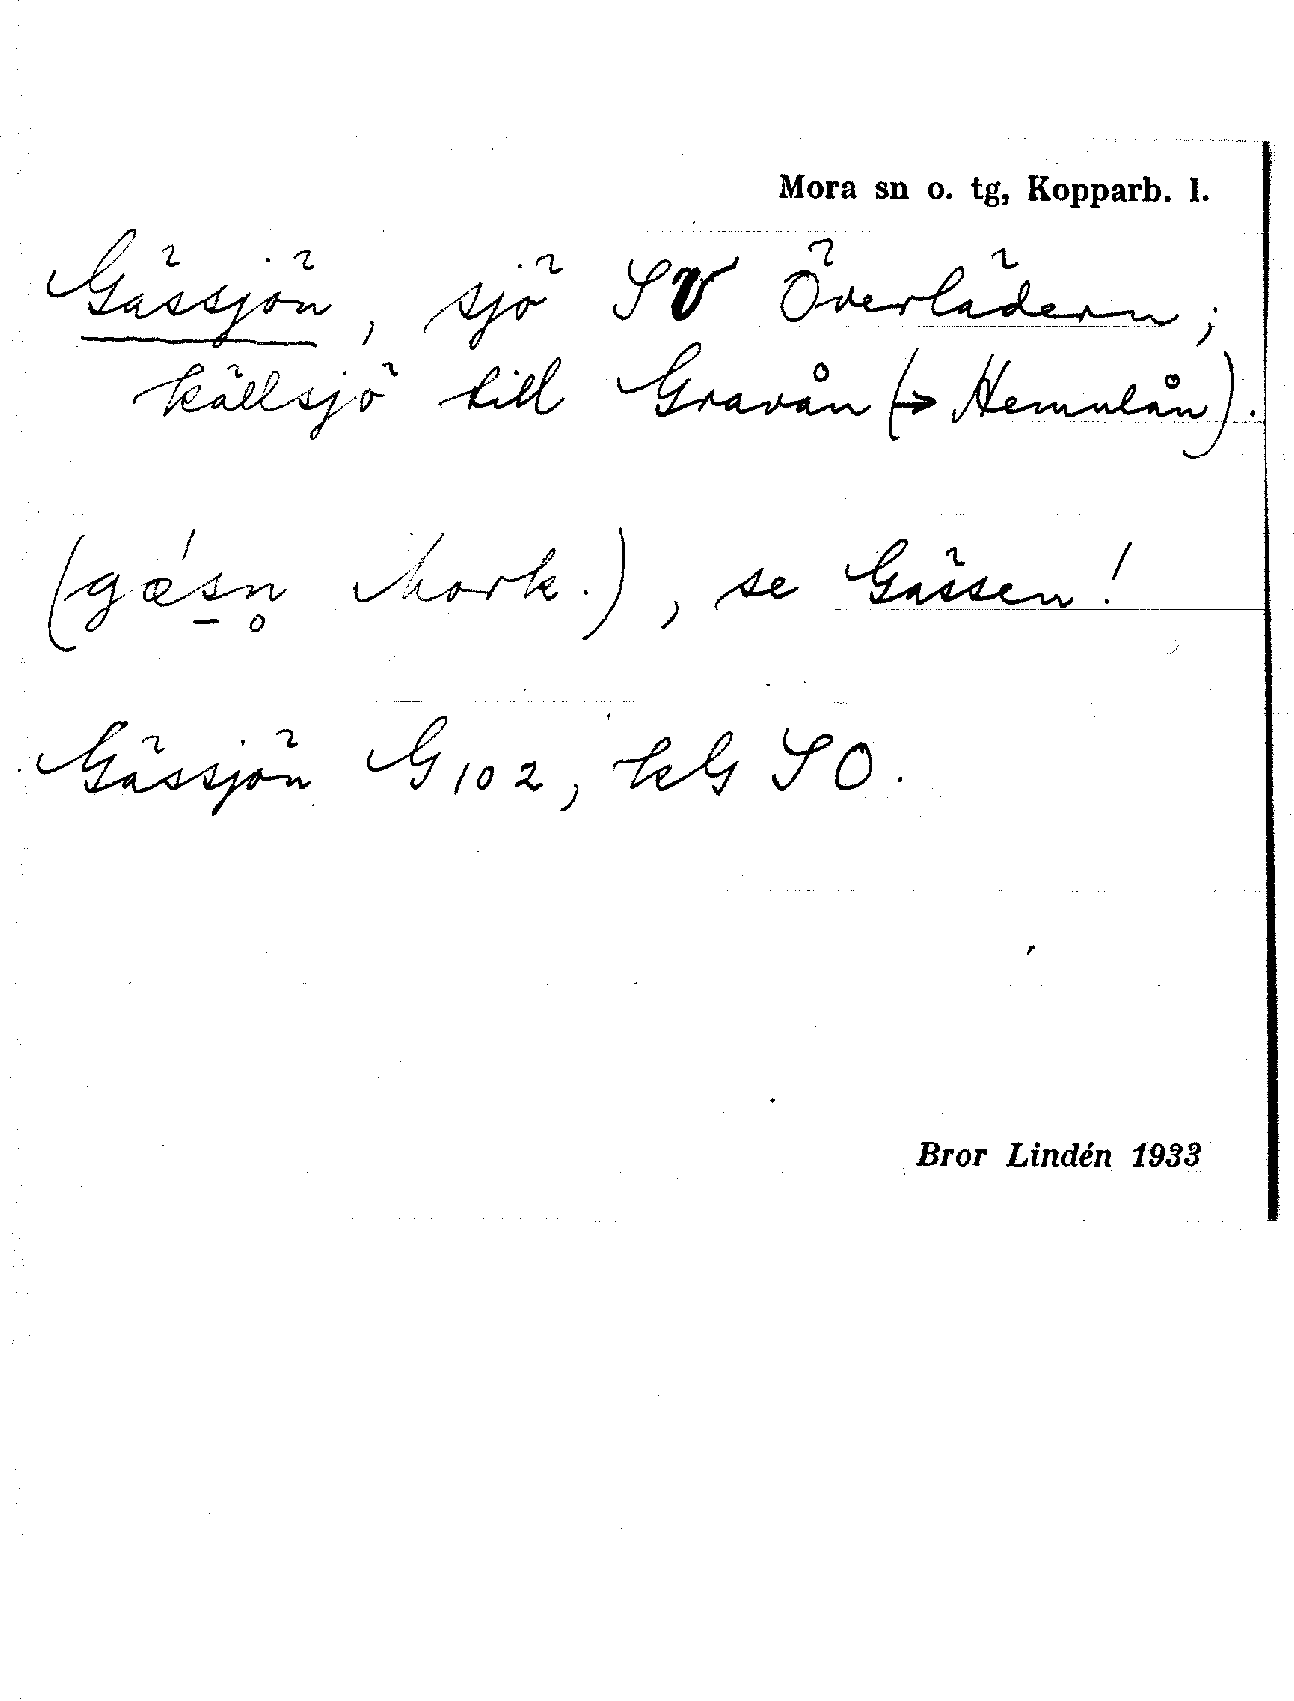 Mora sn o. tg, Kopparb. l.
Gässjön, sjö SV Överlädern;
källsjö till Gravån (→ Hemulån).
(gæ´s̠n̥ Mork.), se Gässen!
Gässjön G 102, kG SO.
Bror Lindén 1933